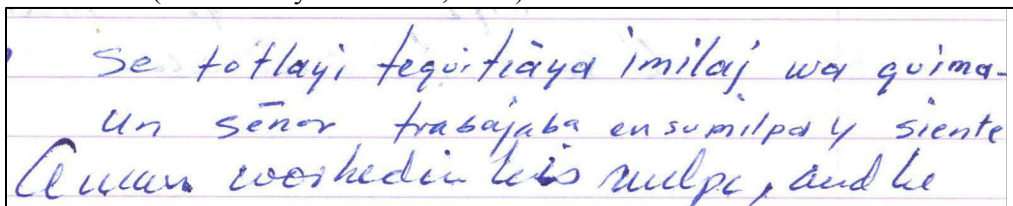 Se totlayi tequitiāya imilaj wa quima-
un sēnor trabajaba en su milpa y siente
A man worked in his milpa, and he